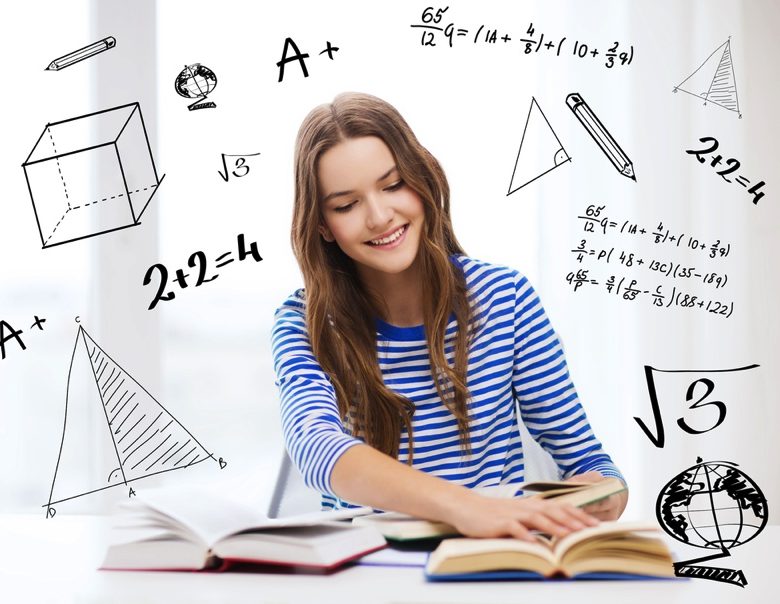 65/12 q = (1A + 4/8) + (10 + 2/3 q)
A+
2+2=4
√3
65/12 q = (1A + 4/8) + (10 + 2/3 q)
3/4 = P(48 + 13C)(35-18q)
q 65/P = 3/4 (P/65 - C/13)(88+122)
2+2=4
A+
C
B
A
D
√3